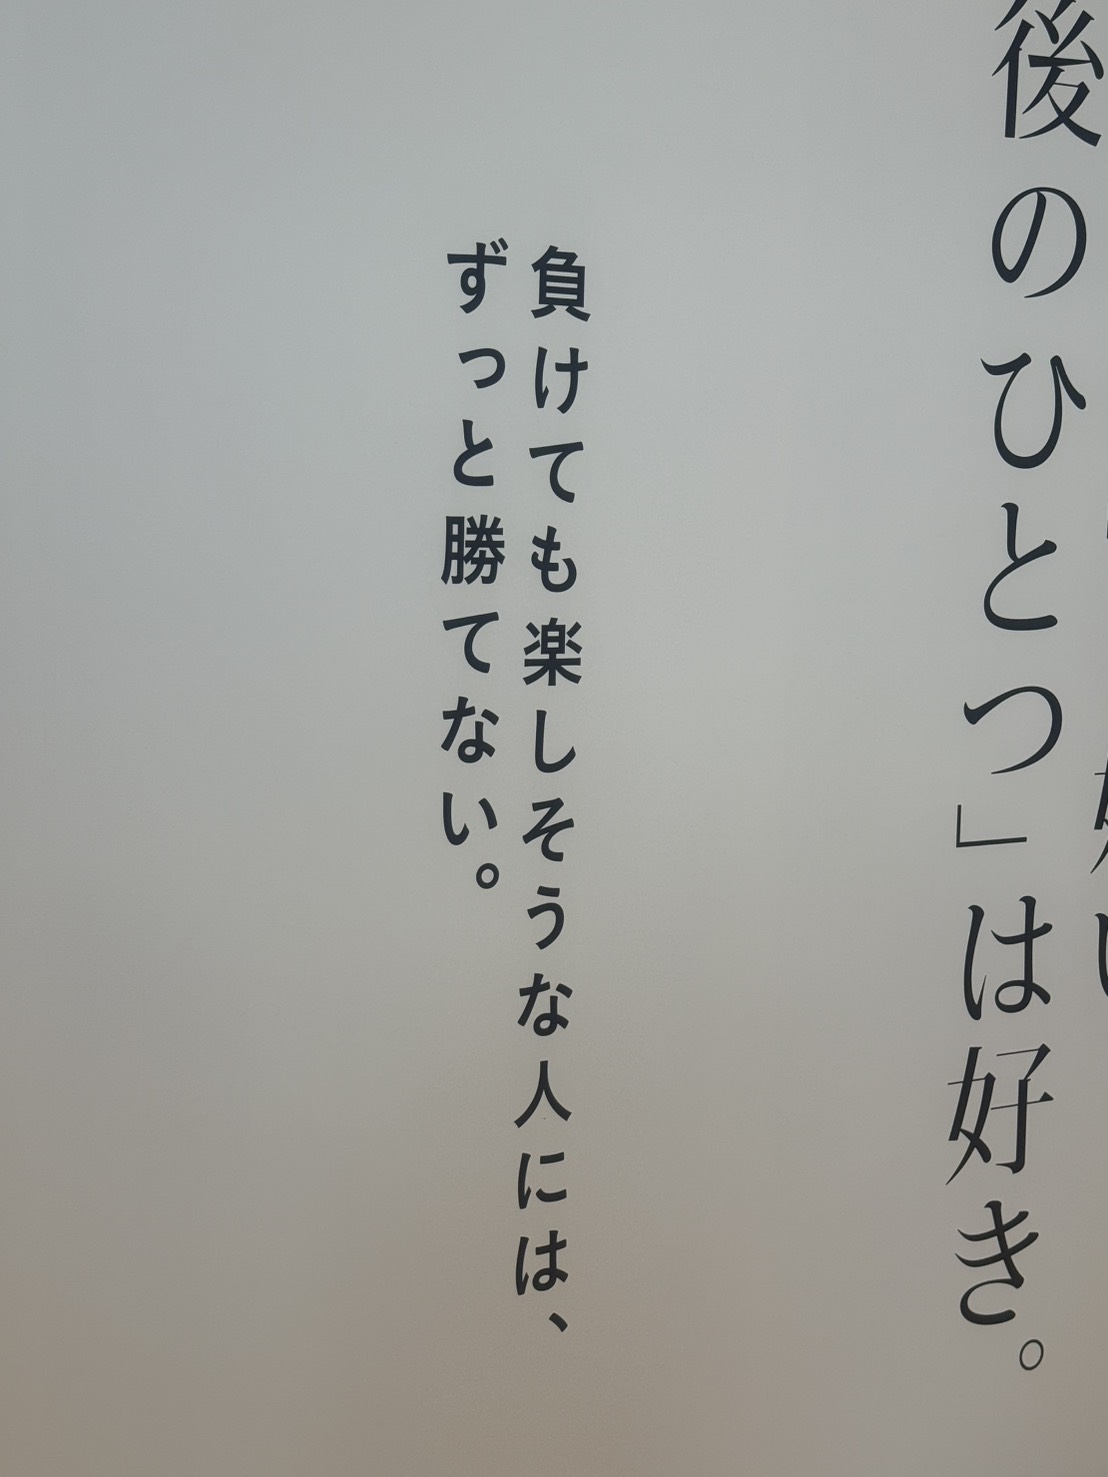 後のひとつ」は好き。
負けても楽しそうな人には、
ずっと勝てない。